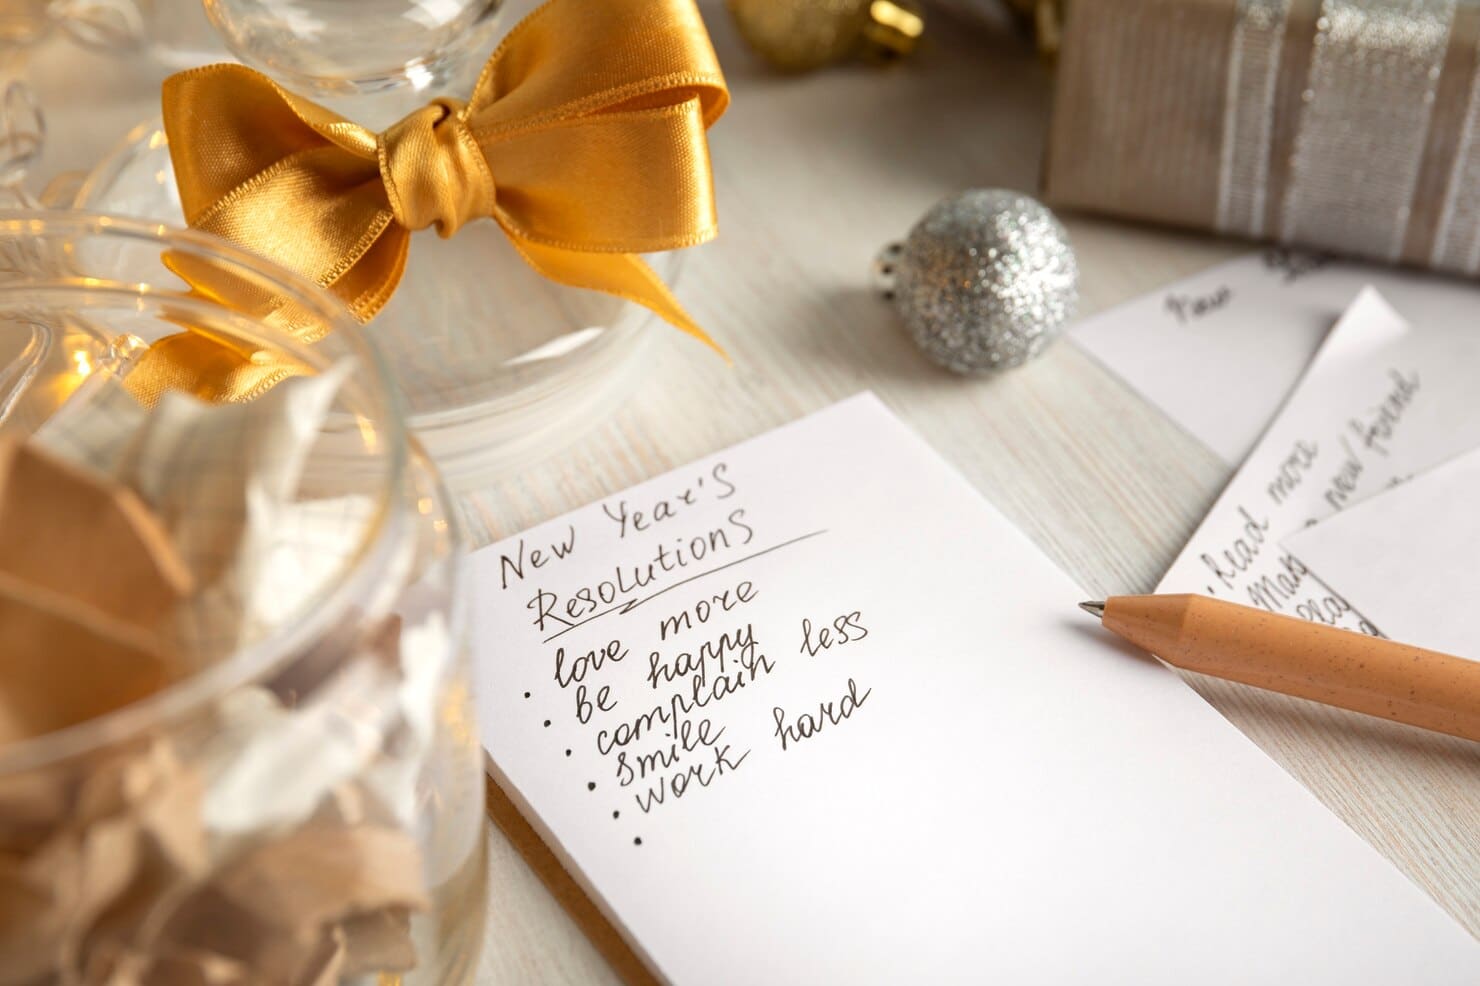 New Year's
Resolutions
• love more
• be happy
• complain less
• smile
• work hard
•
Read more
new friend